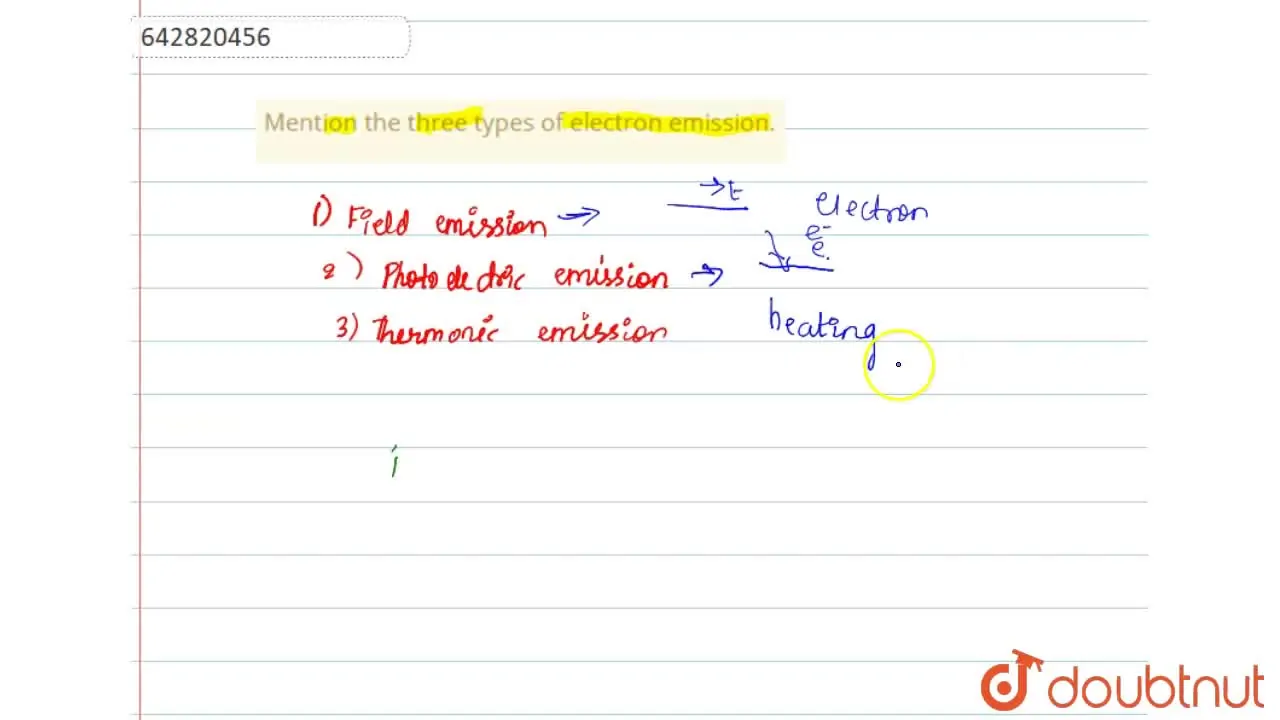 642820456
Mention the three types of electron emission.
1) Field emission → → E electron
2) Photo electric emission → e⁻ e⁻
3) Thermonic emission heating
i
doubtnut